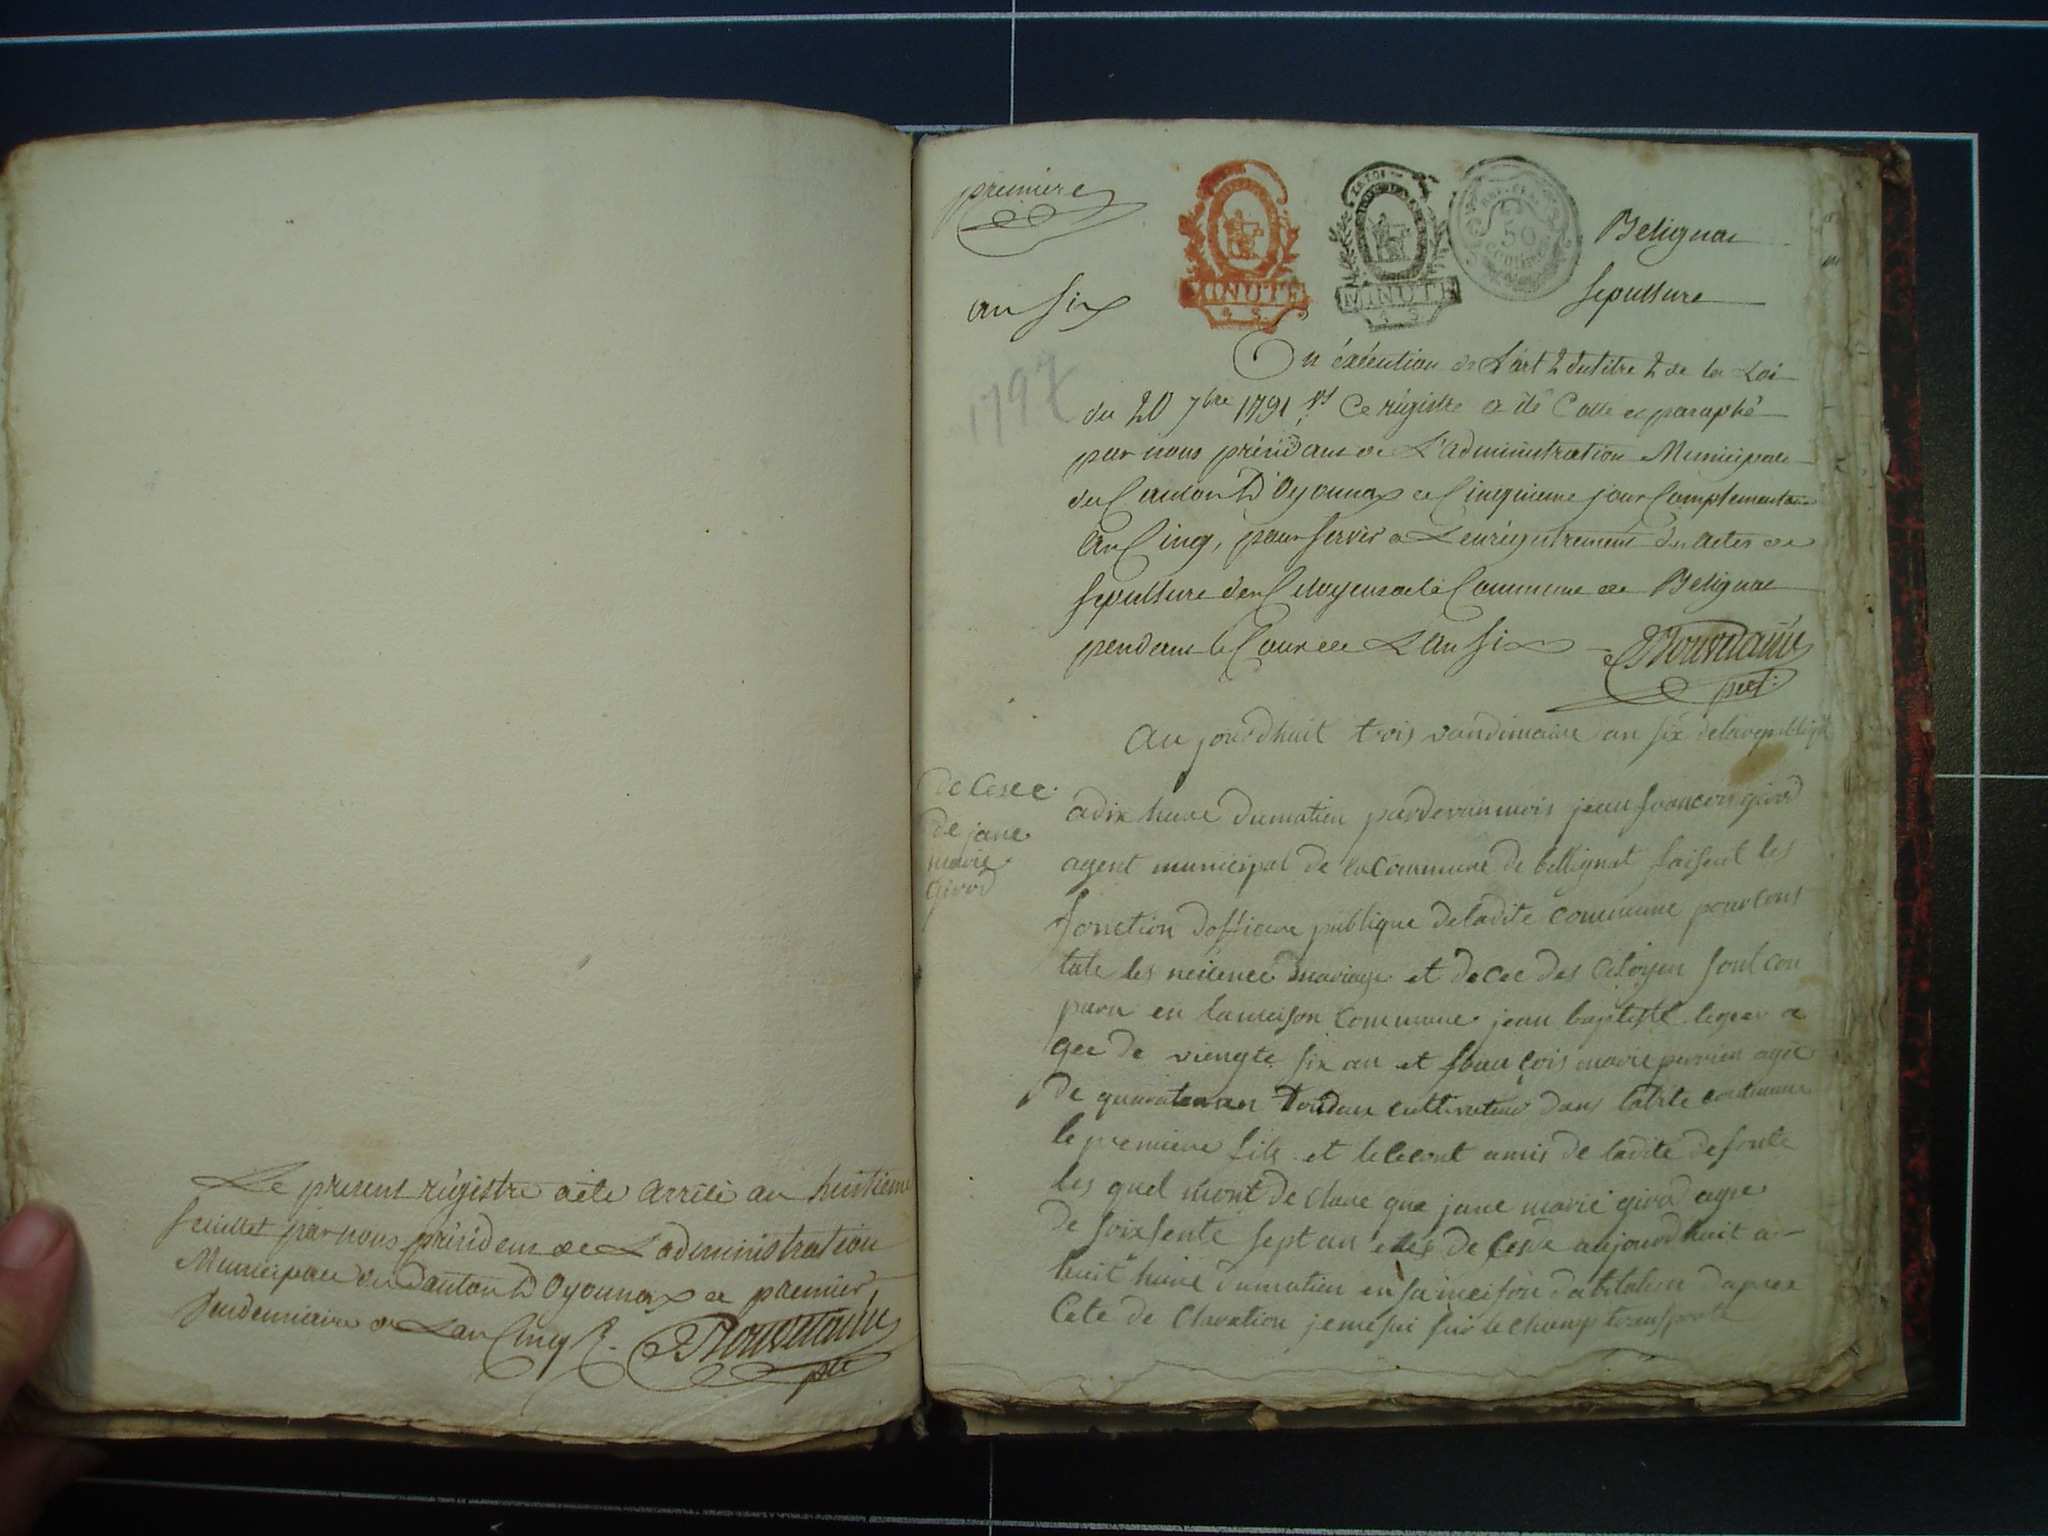 Le present régistre aété arrêté au huitieme
feuillet par nous président de L'administration
Municipale du Canton D'Oyonnax ce premier
Vendemiaire de L'an Cinq
premiere
an Six
1797
MINUTE
MINUTE
50
Belignac
Sepulture
En exécution de L'art 2 du titre 2 de la Loi
du 20 7bre 1791 Ce régistre a été Cotté et paraphé
par nous président de L'administration Municipale
du Canton D'Oyonnax ce Cinquieme jour Complementaire
An Cinq, pour servir a L'enrégistrement des Actes de
Sepulture des Citoyens de la Commune de Belignac
pendant le Cour de L'an Six
au jourdhuit trois vandimaire an six delarepublique
de Cesee
de jane
marie
girod
adix heure dumatien pardevanmois jean francois girod
agent municipal de la commune de bellignat faisent les
fonction dofficier publique deladite commune pour cons
tate les neicence mariage et decee des Citoyen sont con
paru en lameison commune jean baptiste a
gee de viengte six an et francois marie agee
de quarateran cultivateur dans ladite commune
le premiere fils et le Cecont amis de ladite defonte
les quel mont de clare que jane marie girod agee
de soixsente sept an de Cesee aujourdhuit a
huit heure dumatien en sa meison dabitation dapres
Cete de claration jemesui sur le champ transporte